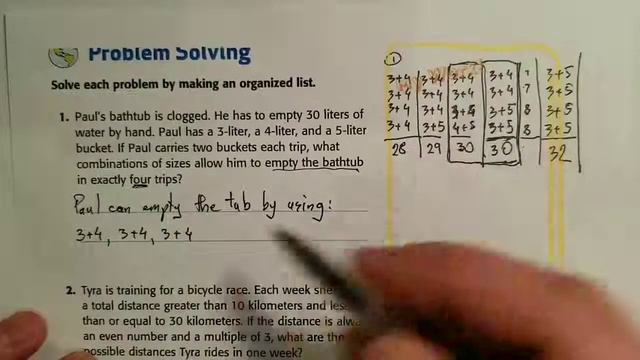 Problem Solving
Solve each problem by making an organized list.
1. Paul's bathtub is clogged. He has to empty 30 liters of
water by hand. Paul has a 3-liter, a 4-liter, and a 5-liter
bucket. If Paul carries two buckets each trip, what
combinations of sizes allow him to empty the bathtub
in exactly four trips?
Paul can empty the tab by using:
3+4, 3+4, 3+4
2. Tyra is training for a bicycle race. Each week
a total distance greater than 10 kilometers and
than or equal to 30 kilometers. If the distance is
an even number and a multiple of 3, what are
possible distances Tyra rides in one week?
1
3+4 3+4 3+4 3+4 7 3+5
3+4 3+4 3+4 3+4 7 3+5
3+4 3+4 3+4 3+5 8 3+5
3+4 3+5 4+5 3+5 8 3+5
28 29 30 30 32